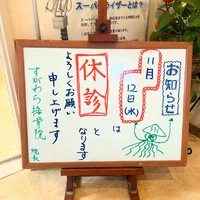 スーパーライザーとは？
お知らせ
11月
12日(水)は
休診と
なります
よろしくお願い
申し上げます
すがわら接骨院
院長